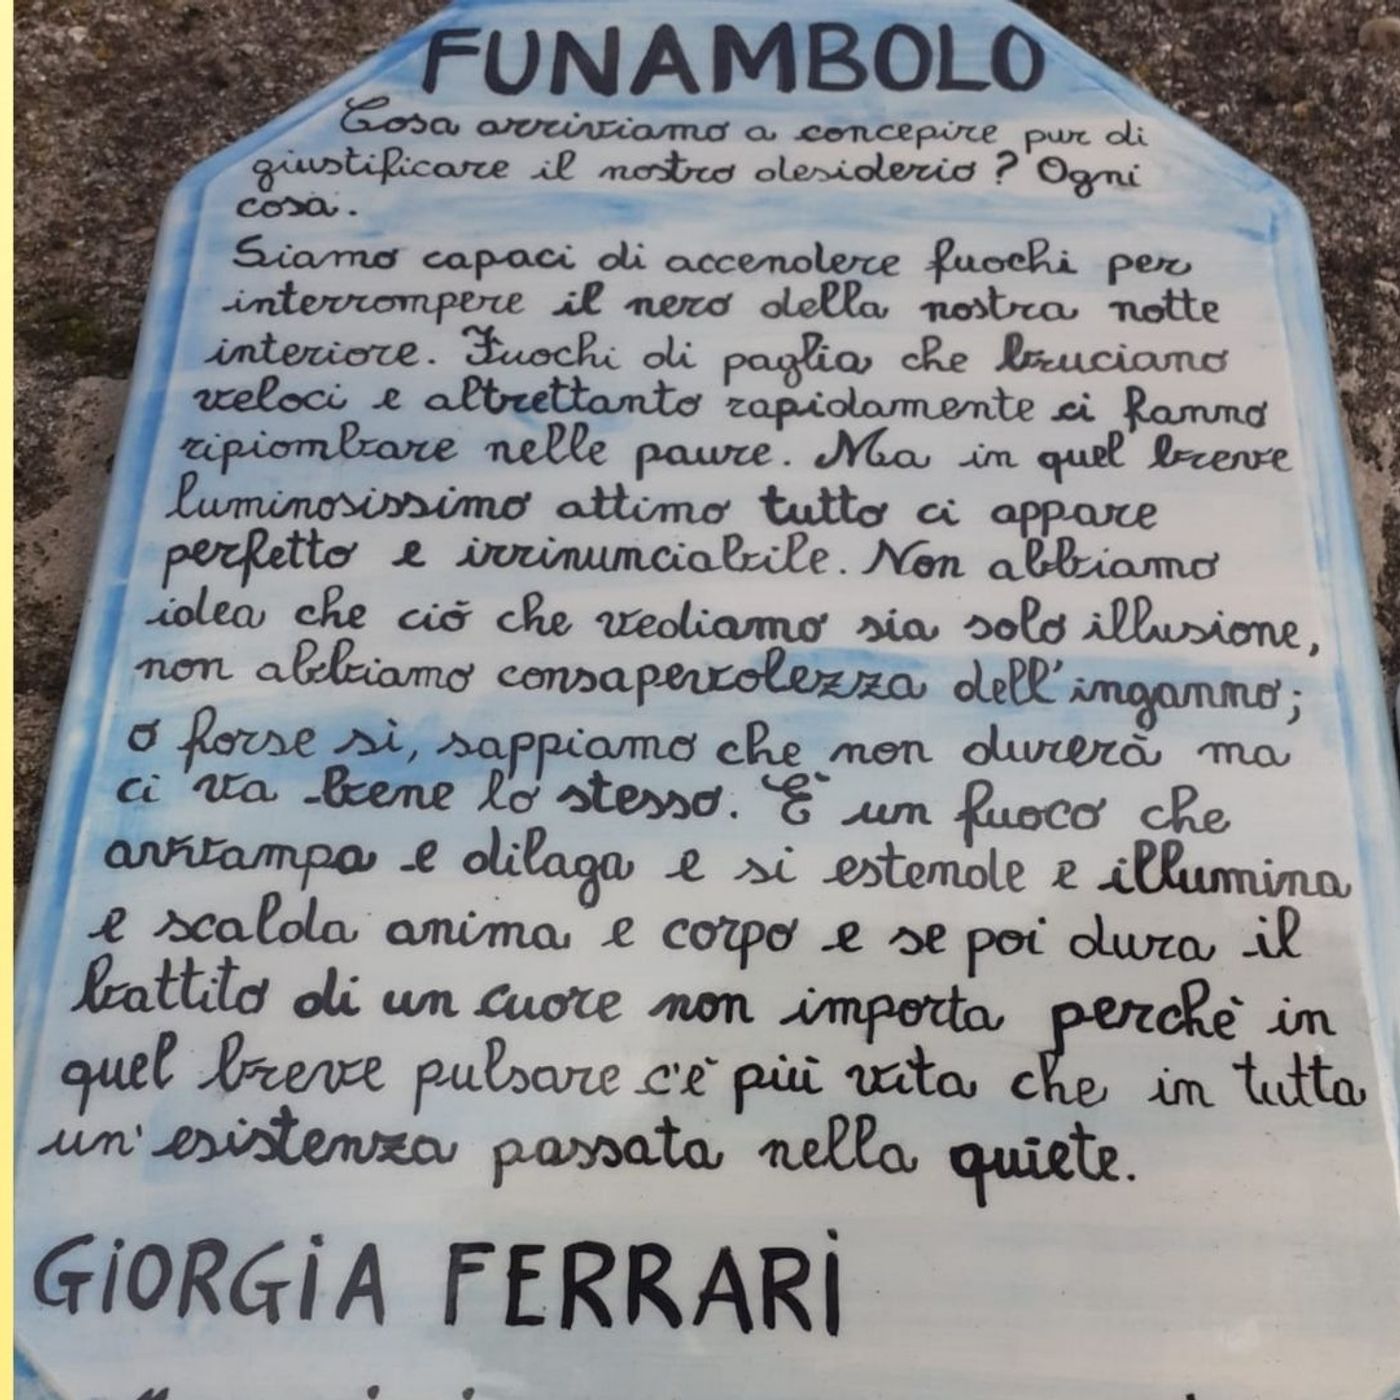 FUNAMBOLO
Cosa arriviamo a concepire pur di
giustificare il nostro desiderio? Ogni
cosa.
Siamo capaci di accendere fuochi per
interrompere il nero della nostra notte
interiore. Fuochi di paglia che bruciano
veloci e altrettanto rapidamente ci fanno
ripiombare nelle paure. Ma in quel breve
luminosissimo attimo tutto ci appare
perfetto e irrinunciabile. Non abbiamo
idea che ciò che vediamo sia solo illusione,
non abbiamo consapevolezza dell'inganno;
o forse sì, sappiamo che non durerà ma
ci va bene lo stesso. È un fuoco che
avvampa e dilaga e si estende e illumina
e scalda anima e corpo e se poi dura il
battito di un cuore non importa perchè in
quel breve pulsare c'è più vita che in tutta
un'esistenza passata nella quiete.
GIORGIA FERRARI